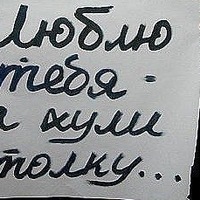 Люблю
тебя -
а хули
толку...